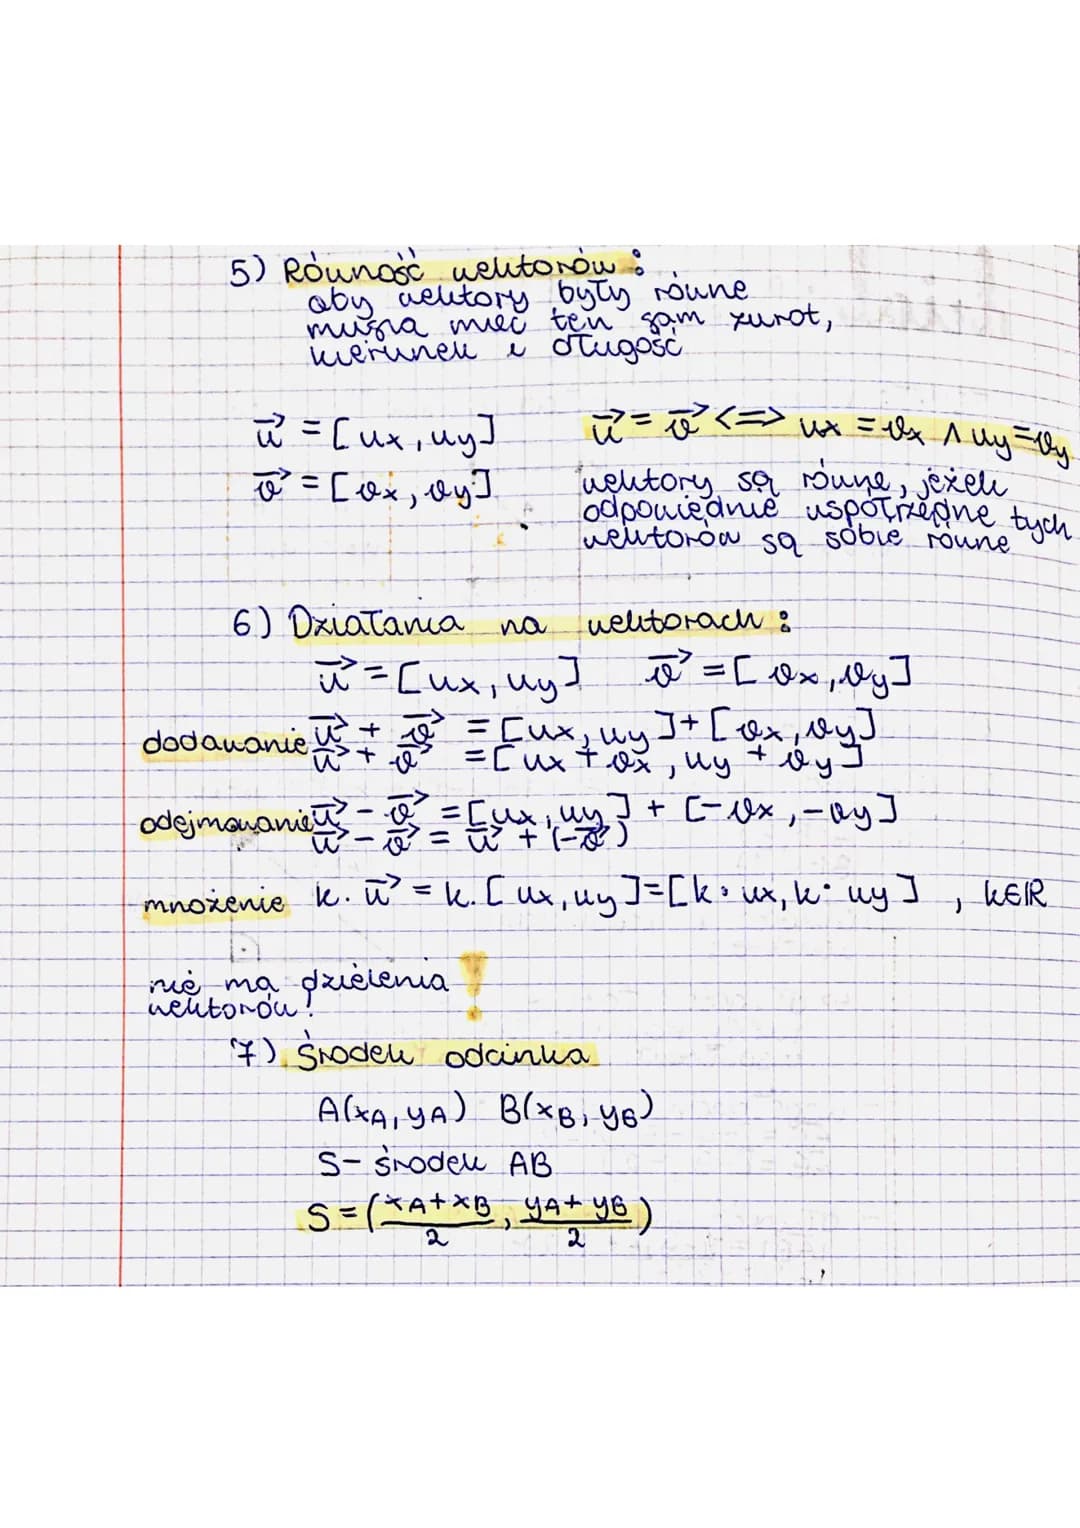 5) Równość wektorów:
aby wektory były równe
muszą mieć ten sam zwrot,
kierunek i długość
u⃗ = [ux, uy]
v⃗ = [vx, vy]
u⃗ = v⃗ <=> ux = vx ∧ uy = vy
wektory są równe, jeżeli
odpowiednie współrzędne tych
wektorów są sobie równe
6) Działania na wektorach:
u⃗ = [ux, uy] v⃗ = [vx, vy]
dodawanie u⃗ + v⃗ = [ux, uy] + [vx, vy]
u⃗ + v⃗ = [ux + vx, uy + vy]
odejmowanie u⃗ - v⃗ = [ux, uy] + [-vx, -vy]
u⃗ - v⃗ = u⃗ + (-v⃗)
mnożenie k·u⃗ = k·[ux, uy] = [k·ux, k·uy], k∈R
nie ma dzielenia !
wektorów!
7) Środek odcinka
A(xA, yA) B(xB, yB)
S- środek AB
S = ((xA + xB)/2, (yA + yB)/2)